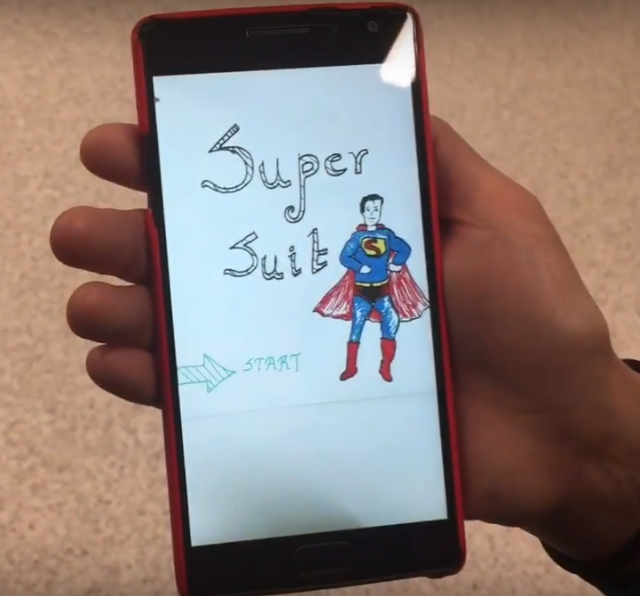 Super
Suit
S
START